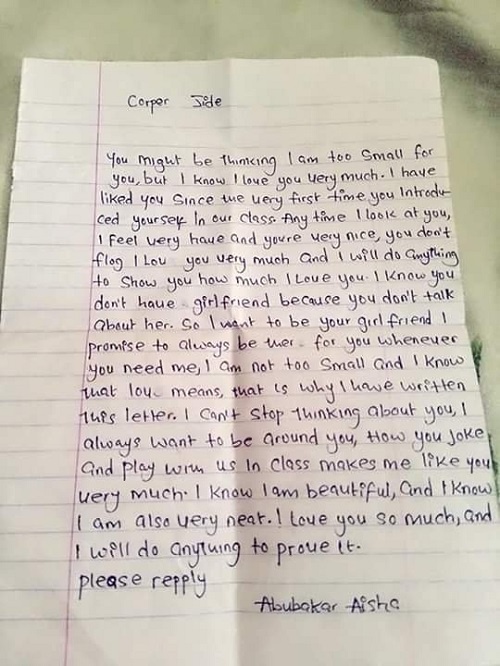 Corper Jide
You might be thinking I am too small for
you, but I know I love you very much. I have
liked you since the very first time you introdu-
ced yourself in our class. Any time I look at you,
I feel very have and youre very nice, you don't
flog I Lov you very much and I will do anything
to show you how much I Love you. I know you
don't have girlfriend because you don't talk
about her. So I want to be your girl friend I
promise to always be ther for you whenever
you need me, I am not too small and I know
that lov means, that is why I have written
this letter. I can't stop thinking about you, I
always want to be around you, How you joke
and play with us in class makes me like you
very much. I know I am beautiful, and I know
I am also very neat. I love you so much, and
I will do anything to prove it.
please repply
Abubakar Aisha